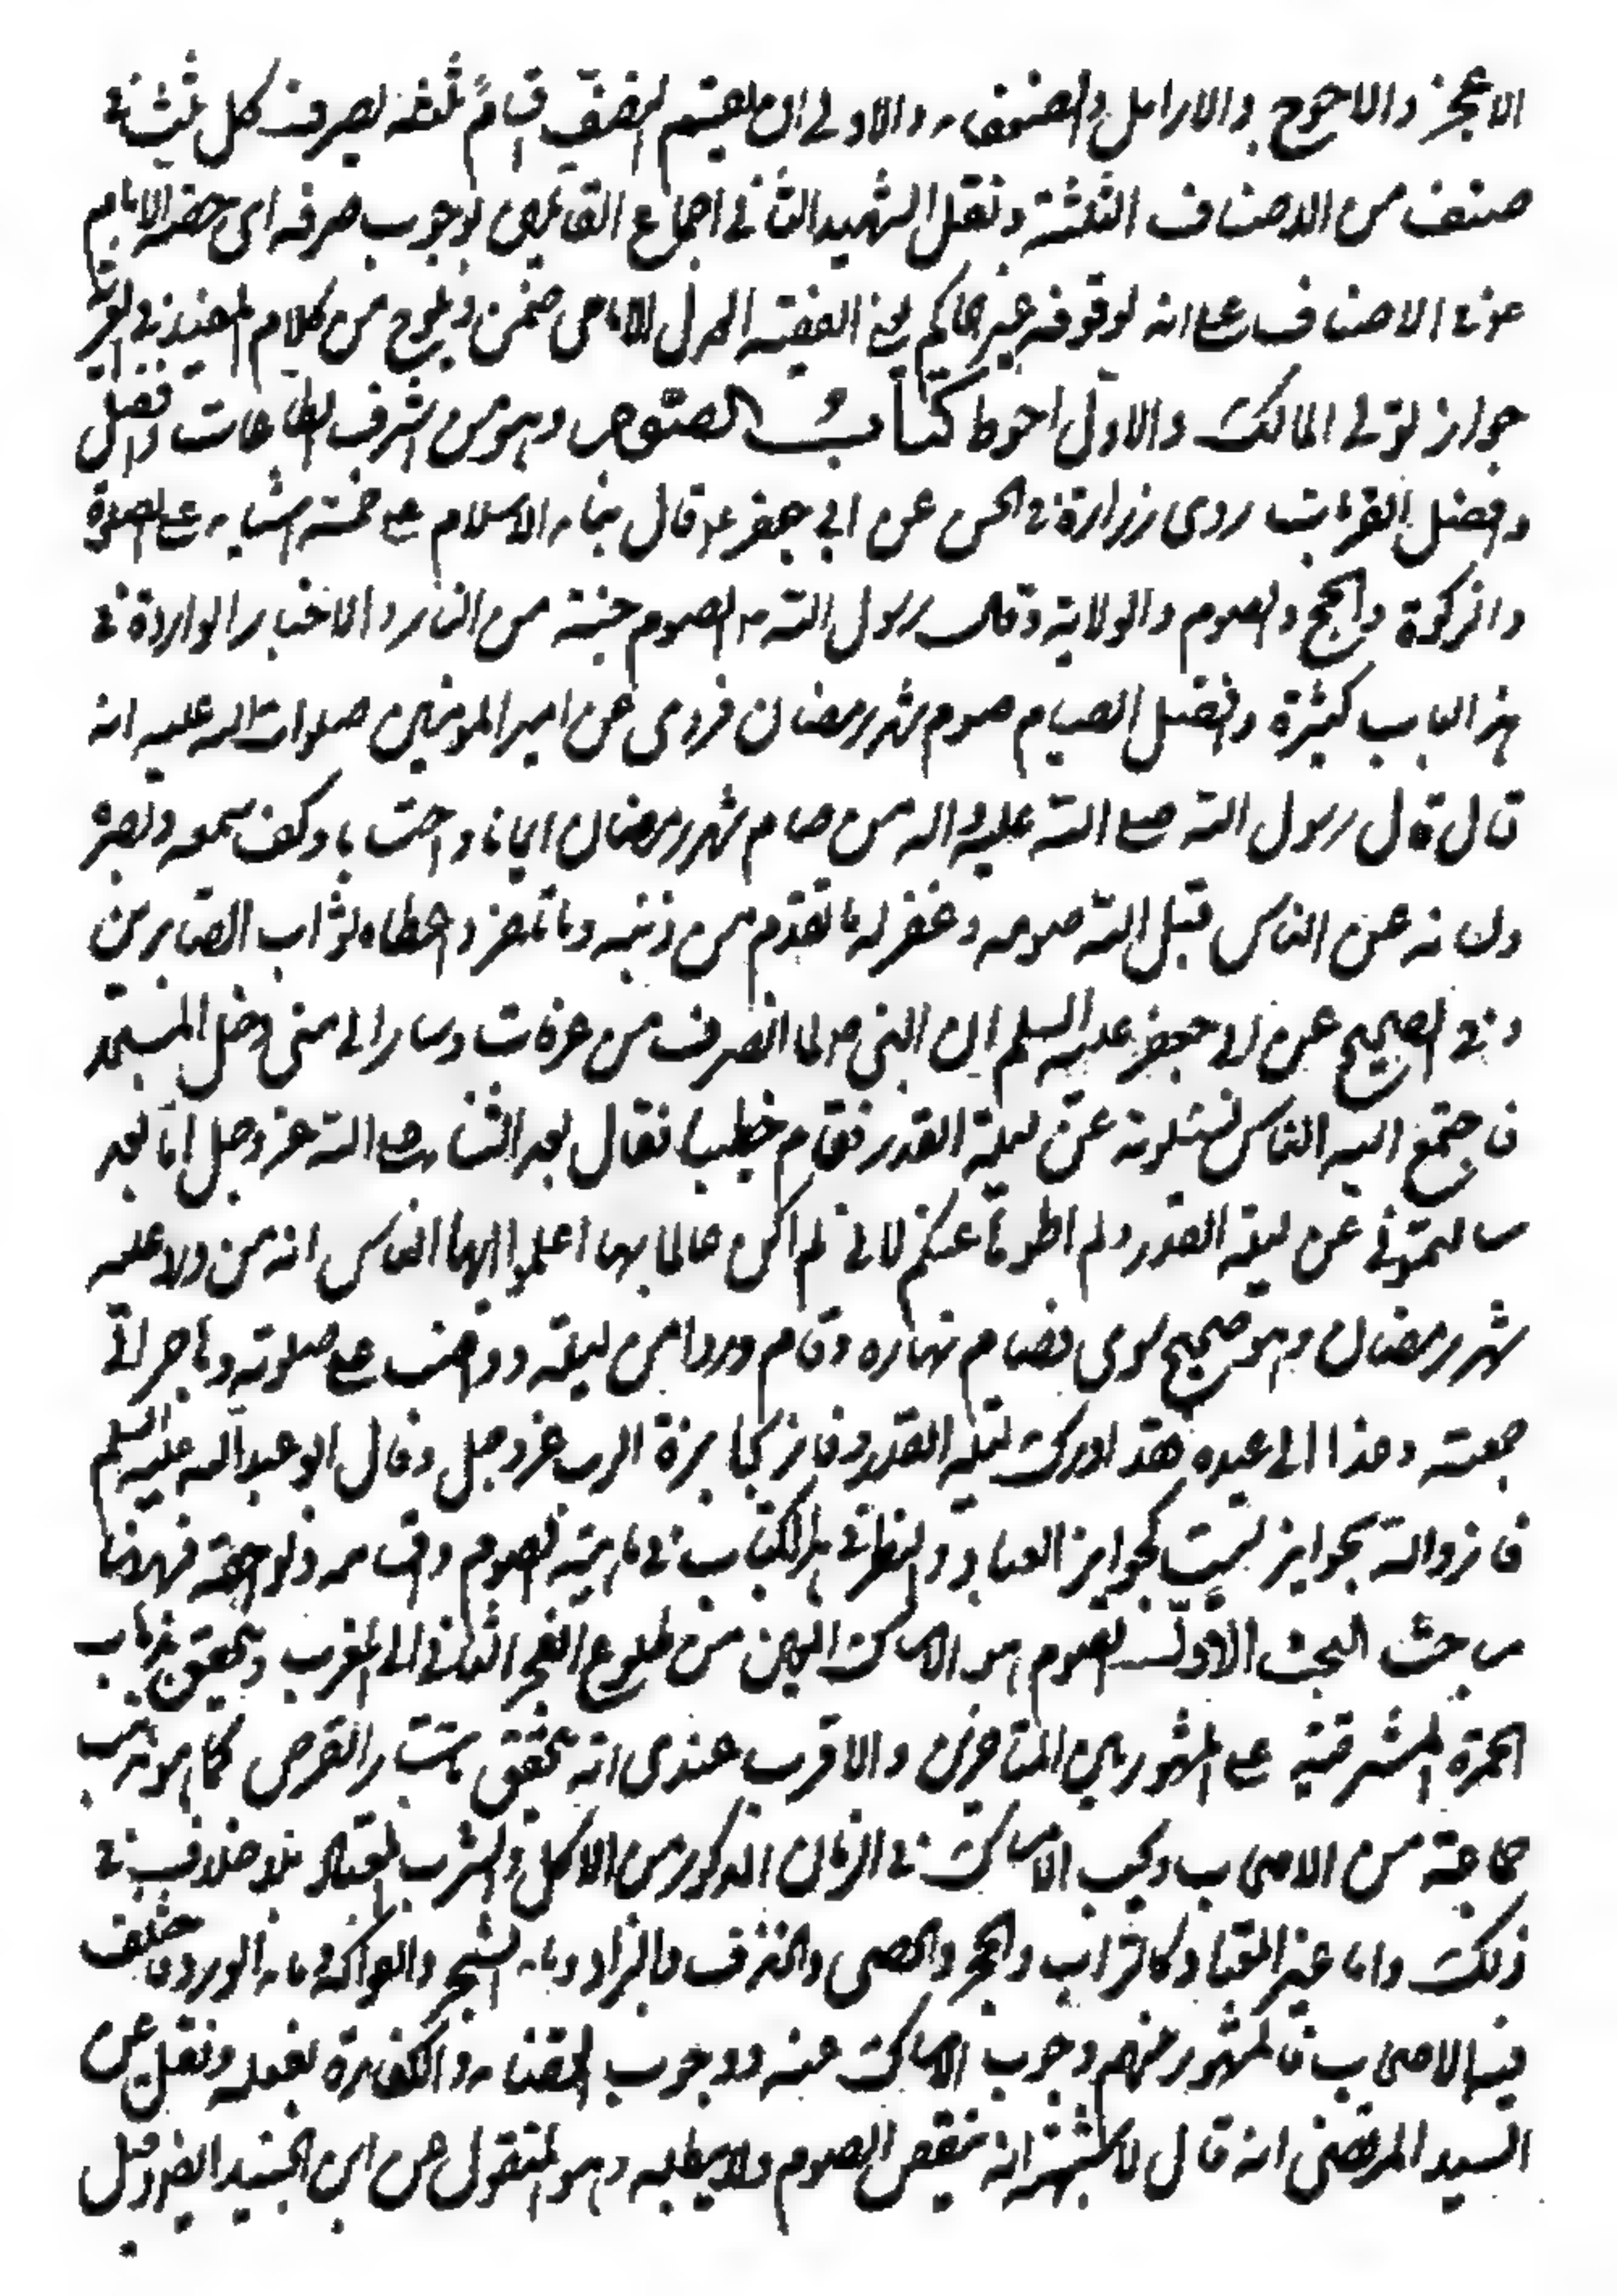 الاعجز والاحوج والارامل والضعفاء والاولى ان يقسم النصف اقساماً ثلثة يصرف كل ثلث فى
صنف من الاصناف الثلثة ونقل الشهيد الثانى اجماع القائلين بوجوب صرفه اى حصة الامام
فى الاصناف على انه لو فرقه غير الحاكم يعنى الفقيه العدل الامامى ضمن ويلوح من كلام المفيد فى
جواز تولى المالك والاول احوط كتاب الصوم وهو من اشرف الطاعات وافضل
وافضل القربات روى زرارة فى الحسن عن ابى جعفر ع قال بناء الاسلام على خمسة اشياء على الصلوة
والزكوة والحج والصوم والولاية وقال رسول الله ص الصوم جنة من النار والاخبار الواردة فى
هذا الباب كثيرة وافضل الصيام صوم شهر رمضان فروى عن امير المومنين صلوات الله عليه انه
قال قال رسول الله صلى الله عليه واله من صام شهر رمضان ايمانا واحتسابا وكف سمعه وبصره
ولسانه عن الناس قبل الله صومه وغفر له ما تقدم من ذنبه وما تاخر واعطاه ثواب الصابرين
وفى الصحيح عن ابى جعفر عليه السلم ان النبى ص لما انصرف من عرفات وسار الى منى دخل المسجد
فاجتمع اليه الناس يسئلونه عن ليلة القدر فقام خطيبا فقال بعد الثناء على الله عز وجل اما بعد
سالتمونى عن ليلة القدر ولم اطوها عنكم لانى لم اكن عالما بها اعلموا ايها الناس انه من ورد عليه
شهر رمضان وهو صحيح سوى فصام نهاره وقام وردا من ليلته وواظب على صلوته وهاجر الى
جمعته وغدا الى عيده فقد ادرك ليلة القدر وفاز بجايزة الرب عز وجل وقال ابو عبد الله عليه السلم
فازوا والله بجوايز ليست كجوايز العباد والنظر فى هذا الكتاب فى ماهية الصوم واقسامه ولواحقه فههنا
مباحث البحث الاول الصوم هو الامساك من طلوع الفجر الثانى الى المغرب ويتحقق بذهاب
الحمرة المشرقية على المشهور بين المتاخرين والاقرب عندى انه يتحقق باستتار القرص كما هو مذهب
جماعة من الاصحاب ويجب الامساك فى الزمان المذكور من الاكل والشرب المعتاد بلا خلاف فى
ذلك واما غير المعتاد كالتراب والحجر والحصى والخزف والبرد وماء الشجر والفواكه وماء الورد فاختلف
فيه الاصحاب فالمشهور بينهم وجوب الامساك عنه ووجوب القضاء والكفارة بفعله ونقل عن
السيد المرتضى انه قال الاشبه انه ينقص الصوم ولا يبطله وهو المنقول عن ابن الجنيد ايضا وقيل